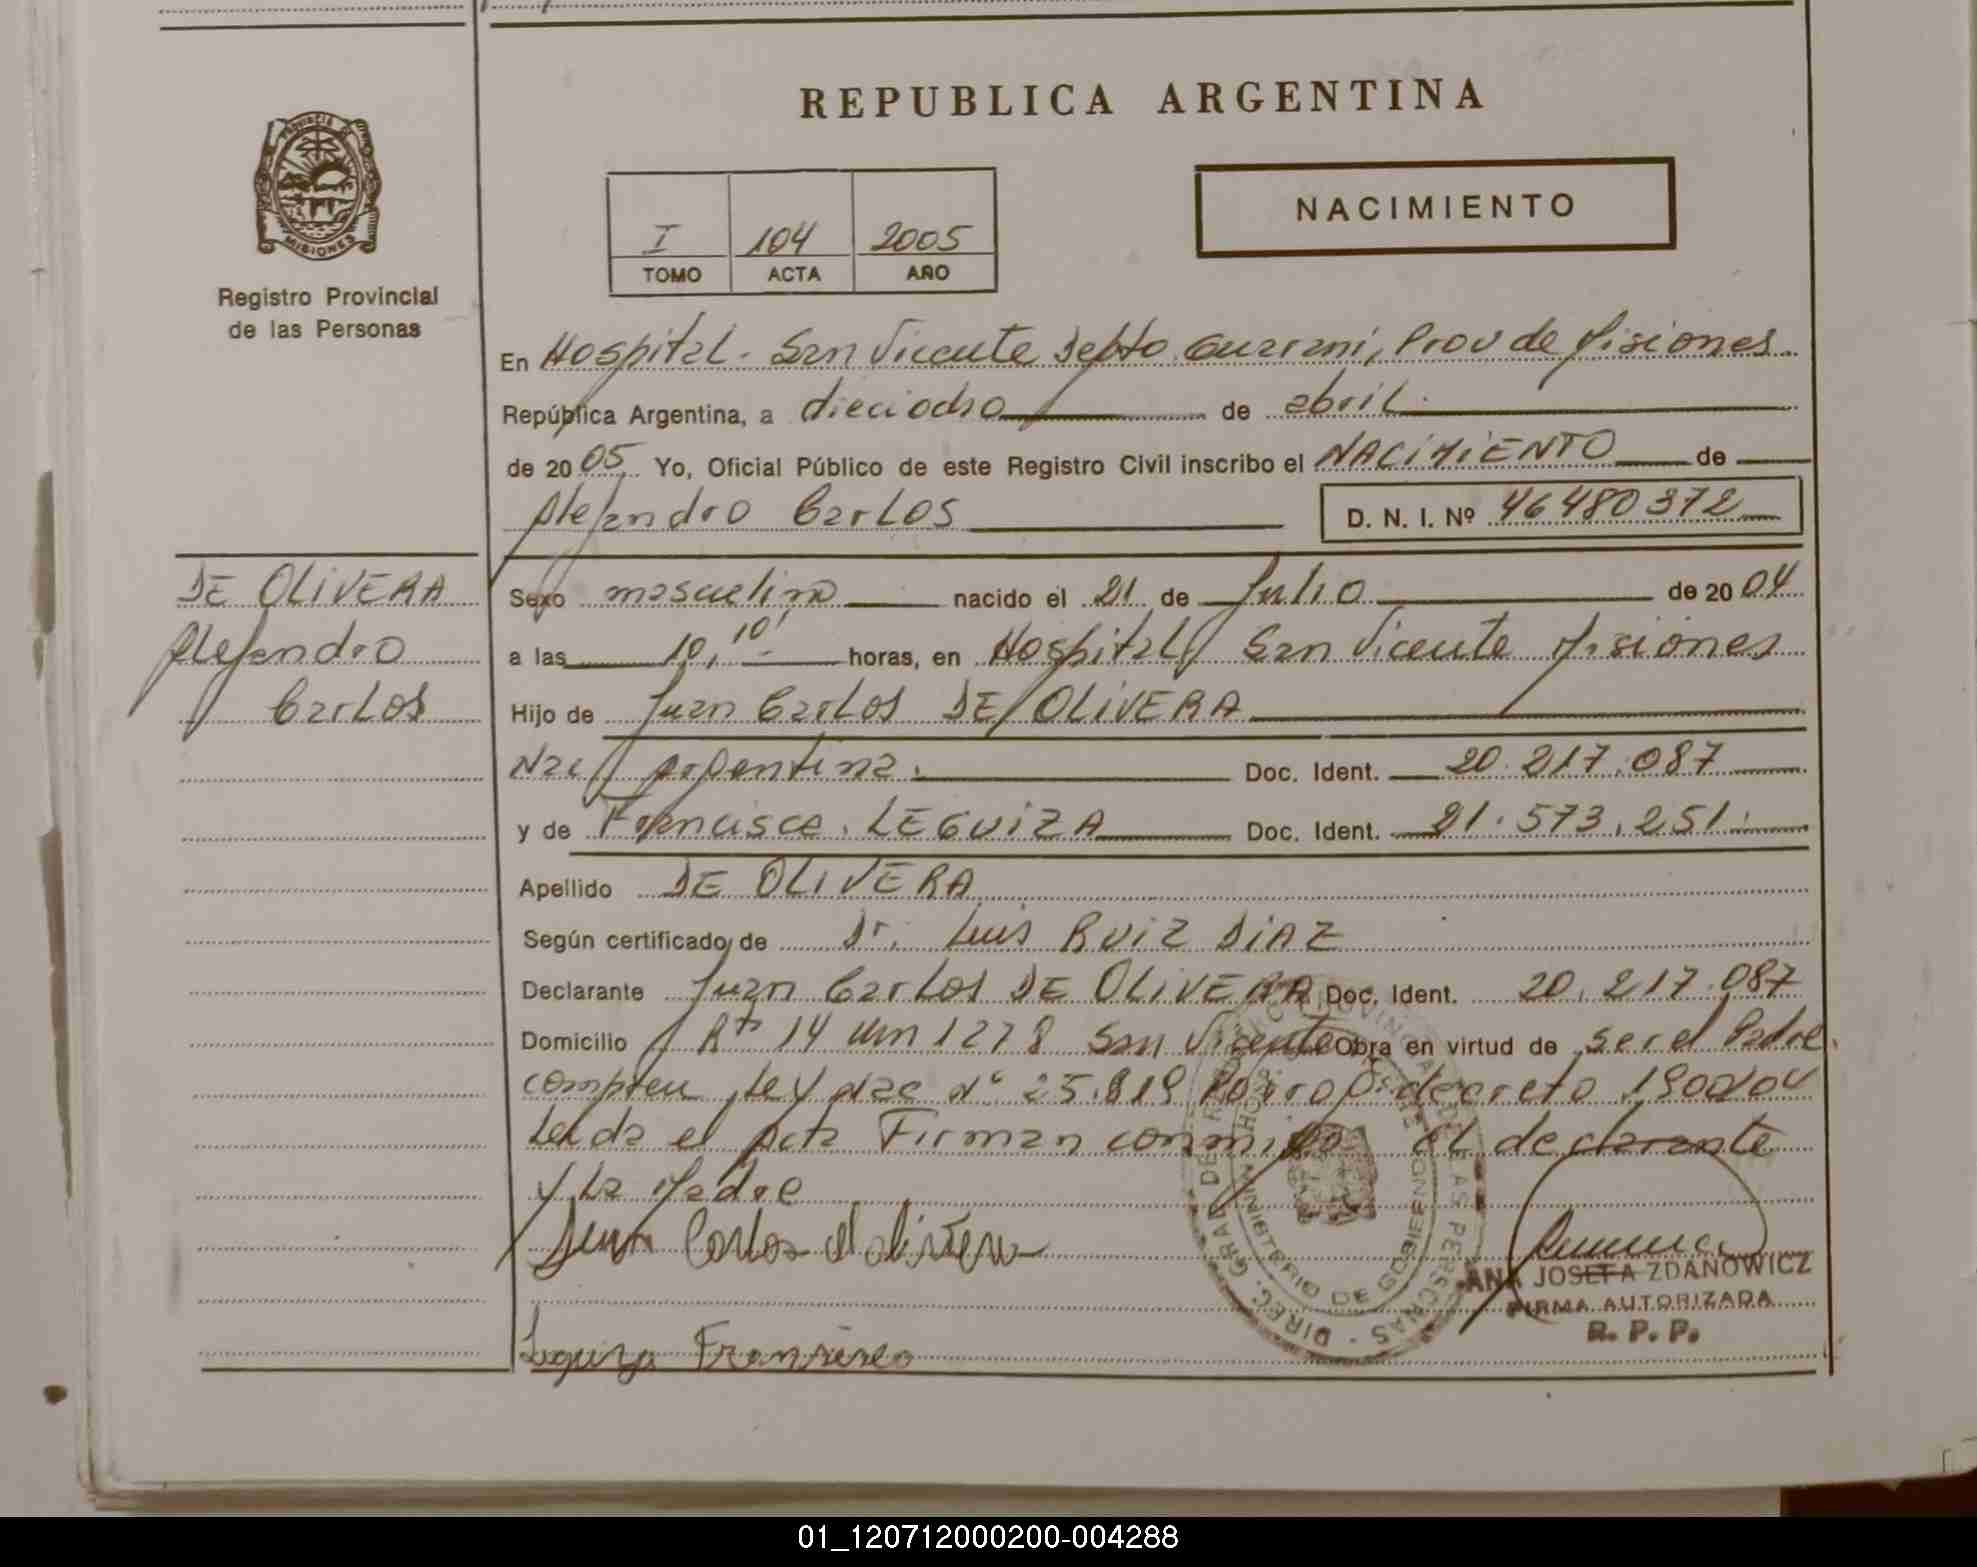 REPUBLICA ARGENTINA
PROVINCIA DE
MISIONES
Registro Provincial
de las Personas
I 104 2005
TOMO ACTA AÑO
NACIMIENTO
En Hospital. San Vicente Depto Guarani, Prov de Misiones
República Argentina, a dieciocho de abril
de 2005 Yo, Oficial Público de este Registro Civil inscribo el NACIMIENTO de
Alejandro Carlos D. N. I. Nº 46480372
DE OLIVERA
Alejandro
Carlos
Sexo masculino nacido el 21 de Julio de 2004
a las 10,10' horas, en Hospital San Vicente Misiones
Hijo de Juan Carlos DE OLIVERA
Nac Argentina. Doc. Ident. 20.217.087
y de Francisca. LEGUIZA Doc. Ident. 21.573.251
Apellido DE OLIVERA
Según certificado de Dr. Luis RUIZ DIAZ
Declarante Juan Carlos DE OLIVERA Doc. Ident. 20.217.087
Domicilio Rta 14 km 1278 San Vicente Obra en virtud de ser el Padre
Ley Nac Nº 25.819 decreto
Leida el Acta Firman conmigo el declarante
y La Madre
Juan Carlos
Leguiza
DIREC. GRAL DE LAS PERSONAS
MINISTERIO DE GOBIERNO
ANA JOSEFA ZDANOWICZ
FIRMA AUTORIZADA
R. P. P.
01_120712000200-004288